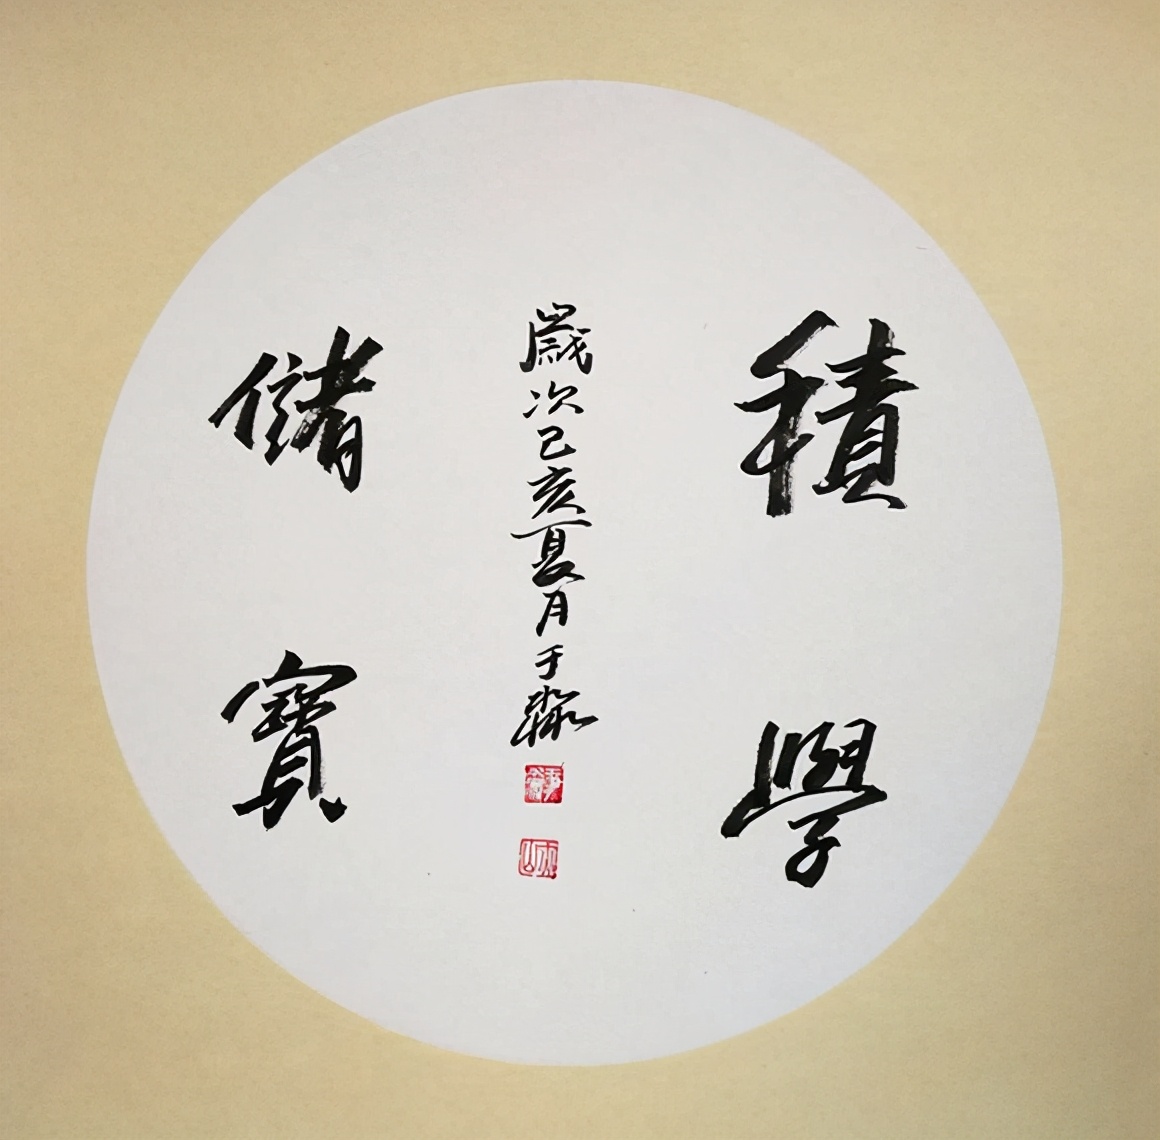 積學
歲次己亥夏月于
儲寶